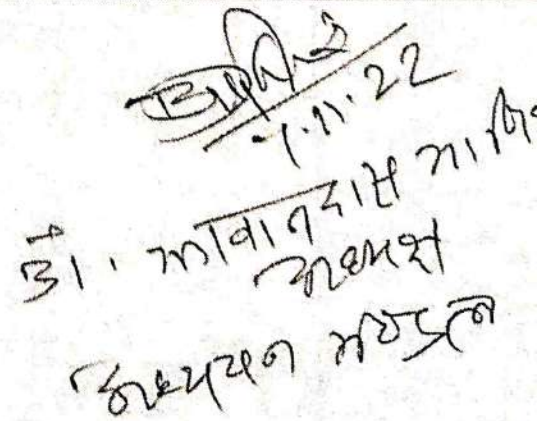 1.11.22
डॉ. भगवानदास
अध्यक्ष
अध्ययन मण्डल